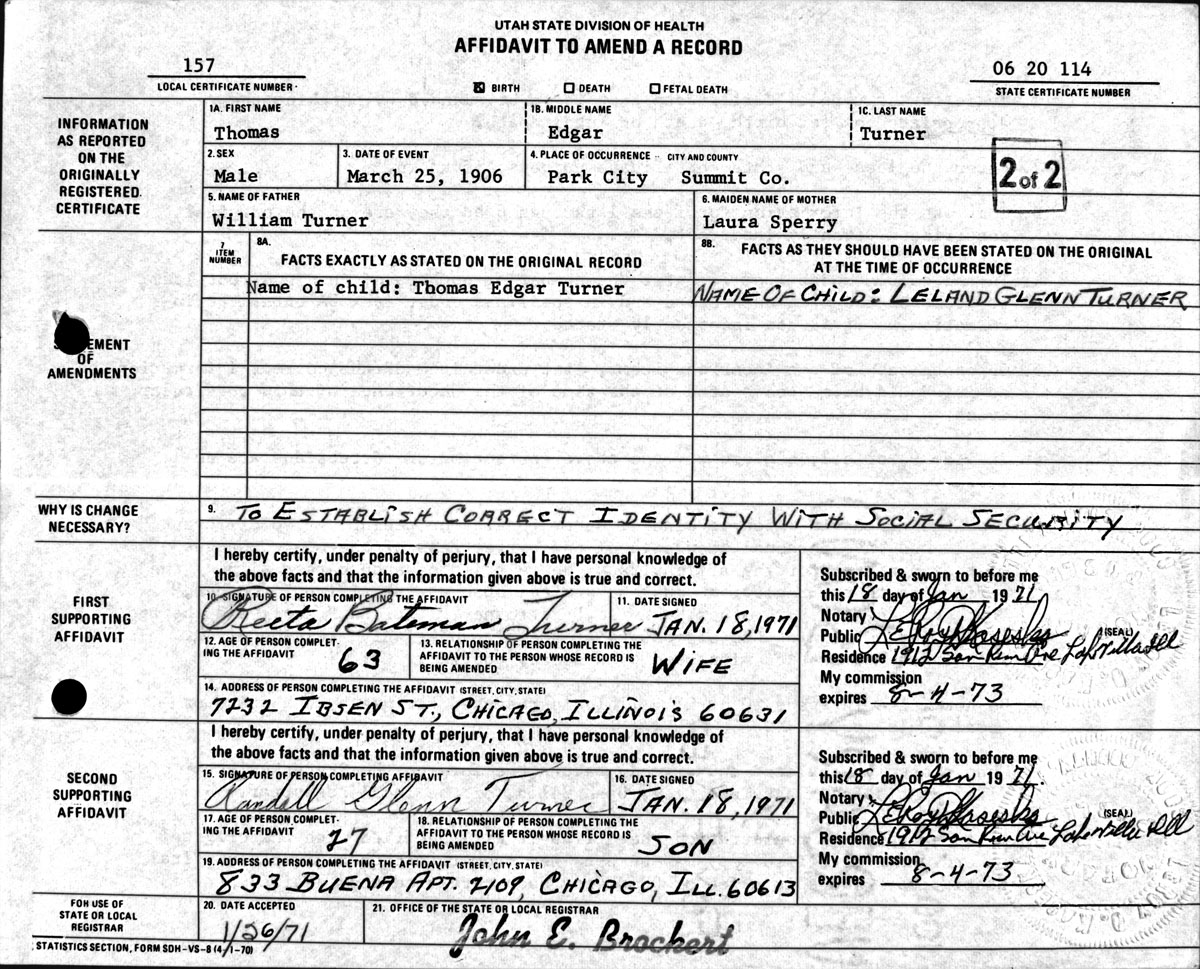 UTAH STATE DIVISION OF HEALTH
AFFIDAVIT TO AMEND A RECORD
157
LOCAL CERTIFICATE NUMBER
☒ BIRTH ☐ DEATH ☐ FETAL DEATH
06 20 114
STATE CERTIFICATE NUMBER
INFORMATION AS REPORTED ON THE ORIGINALLY REGISTERED CERTIFICATE
1A. FIRST NAME 1B. MIDDLE NAME 1C. LAST NAME
Thomas Edgar Turner
2. SEX 3. DATE OF EVENT 4. PLACE OF OCCURRENCE - CITY AND COUNTY
Male March 25, 1906 Park City Summit Co.
2 of 2
5. NAME OF FATHER 6. MAIDEN NAME OF MOTHER
William Turner Laura Sperry
STATEMENT OF AMENDMENTS
7 ITEM NUMBER
8A. FACTS EXACTLY AS STATED ON THE ORIGINAL RECORD
8B. FACTS AS THEY SHOULD HAVE BEEN STATED ON THE ORIGINAL
AT THE TIME OF OCCURRENCE
Name of child: Thomas Edgar Turner NAME OF CHILD: LELAND GLENN TURNER
WHY IS CHANGE NECESSARY?
9. TO ESTABLISH CORRECT IDENTITY WITH SOCIAL SECURITY
FIRST SUPPORTING AFFIDAVIT
I hereby certify, under penalty of perjury, that I have personal knowledge of
the above facts and that the information given above is true and correct.
10. SIGNATURE OF PERSON COMPLETING THE AFFIDAVIT 11. DATE SIGNED
Reeta Bateman Turner JAN. 18, 1971
12. AGE OF PERSON COMPLETING THE AFFIDAVIT 63
13. RELATIONSHIP OF PERSON COMPLETING THE AFFIDAVIT TO THE PERSON WHOSE RECORD IS BEING AMENDED WIFE
14. ADDRESS OF PERSON COMPLETING THE AFFIDAVIT (STREET, CITY, STATE)
7232 IBSEN ST., CHICAGO, ILLINOIS 60631
Subscribed & sworn to before me
this 18 day of Jan 1971
Notary
Public
(SEAL)
Residence 1912
My commission
expires 8-4-73
SECOND SUPPORTING AFFIDAVIT
I hereby certify, under penalty of perjury, that I have personal knowledge of
the above facts and that the information given above is true and correct.
15. SIGNATURE OF PERSON COMPLETING AFFIDAVIT 16. DATE SIGNED
Randall Glenn Turner JAN. 18, 1971
17. AGE OF PERSON COMPLETING THE AFFIDAVIT 27
18. RELATIONSHIP OF PERSON COMPLETING THE AFFIDAVIT TO THE PERSON WHOSE RECORD IS BEING AMENDED SON
19. ADDRESS OF PERSON COMPLETING THE AFFIDAVIT (STREET, CITY, STATE)
833 BUENA APT. 2109, CHICAGO, ILL. 60613
Subscribed & sworn to before me
this 18 day of Jan 1971.
Notary
Public
(SEAL)
Residence 1912
My commission
expires 8-4-73
FOR USE OF STATE OR LOCAL REGISTRAR
20. DATE ACCEPTED 21. OFFICE OF THE STATE OR LOCAL REGISTRAR
1/26/71 John E. Brockert
STATISTICS SECTION, FORM SDH-VS-8 (4/1-70)